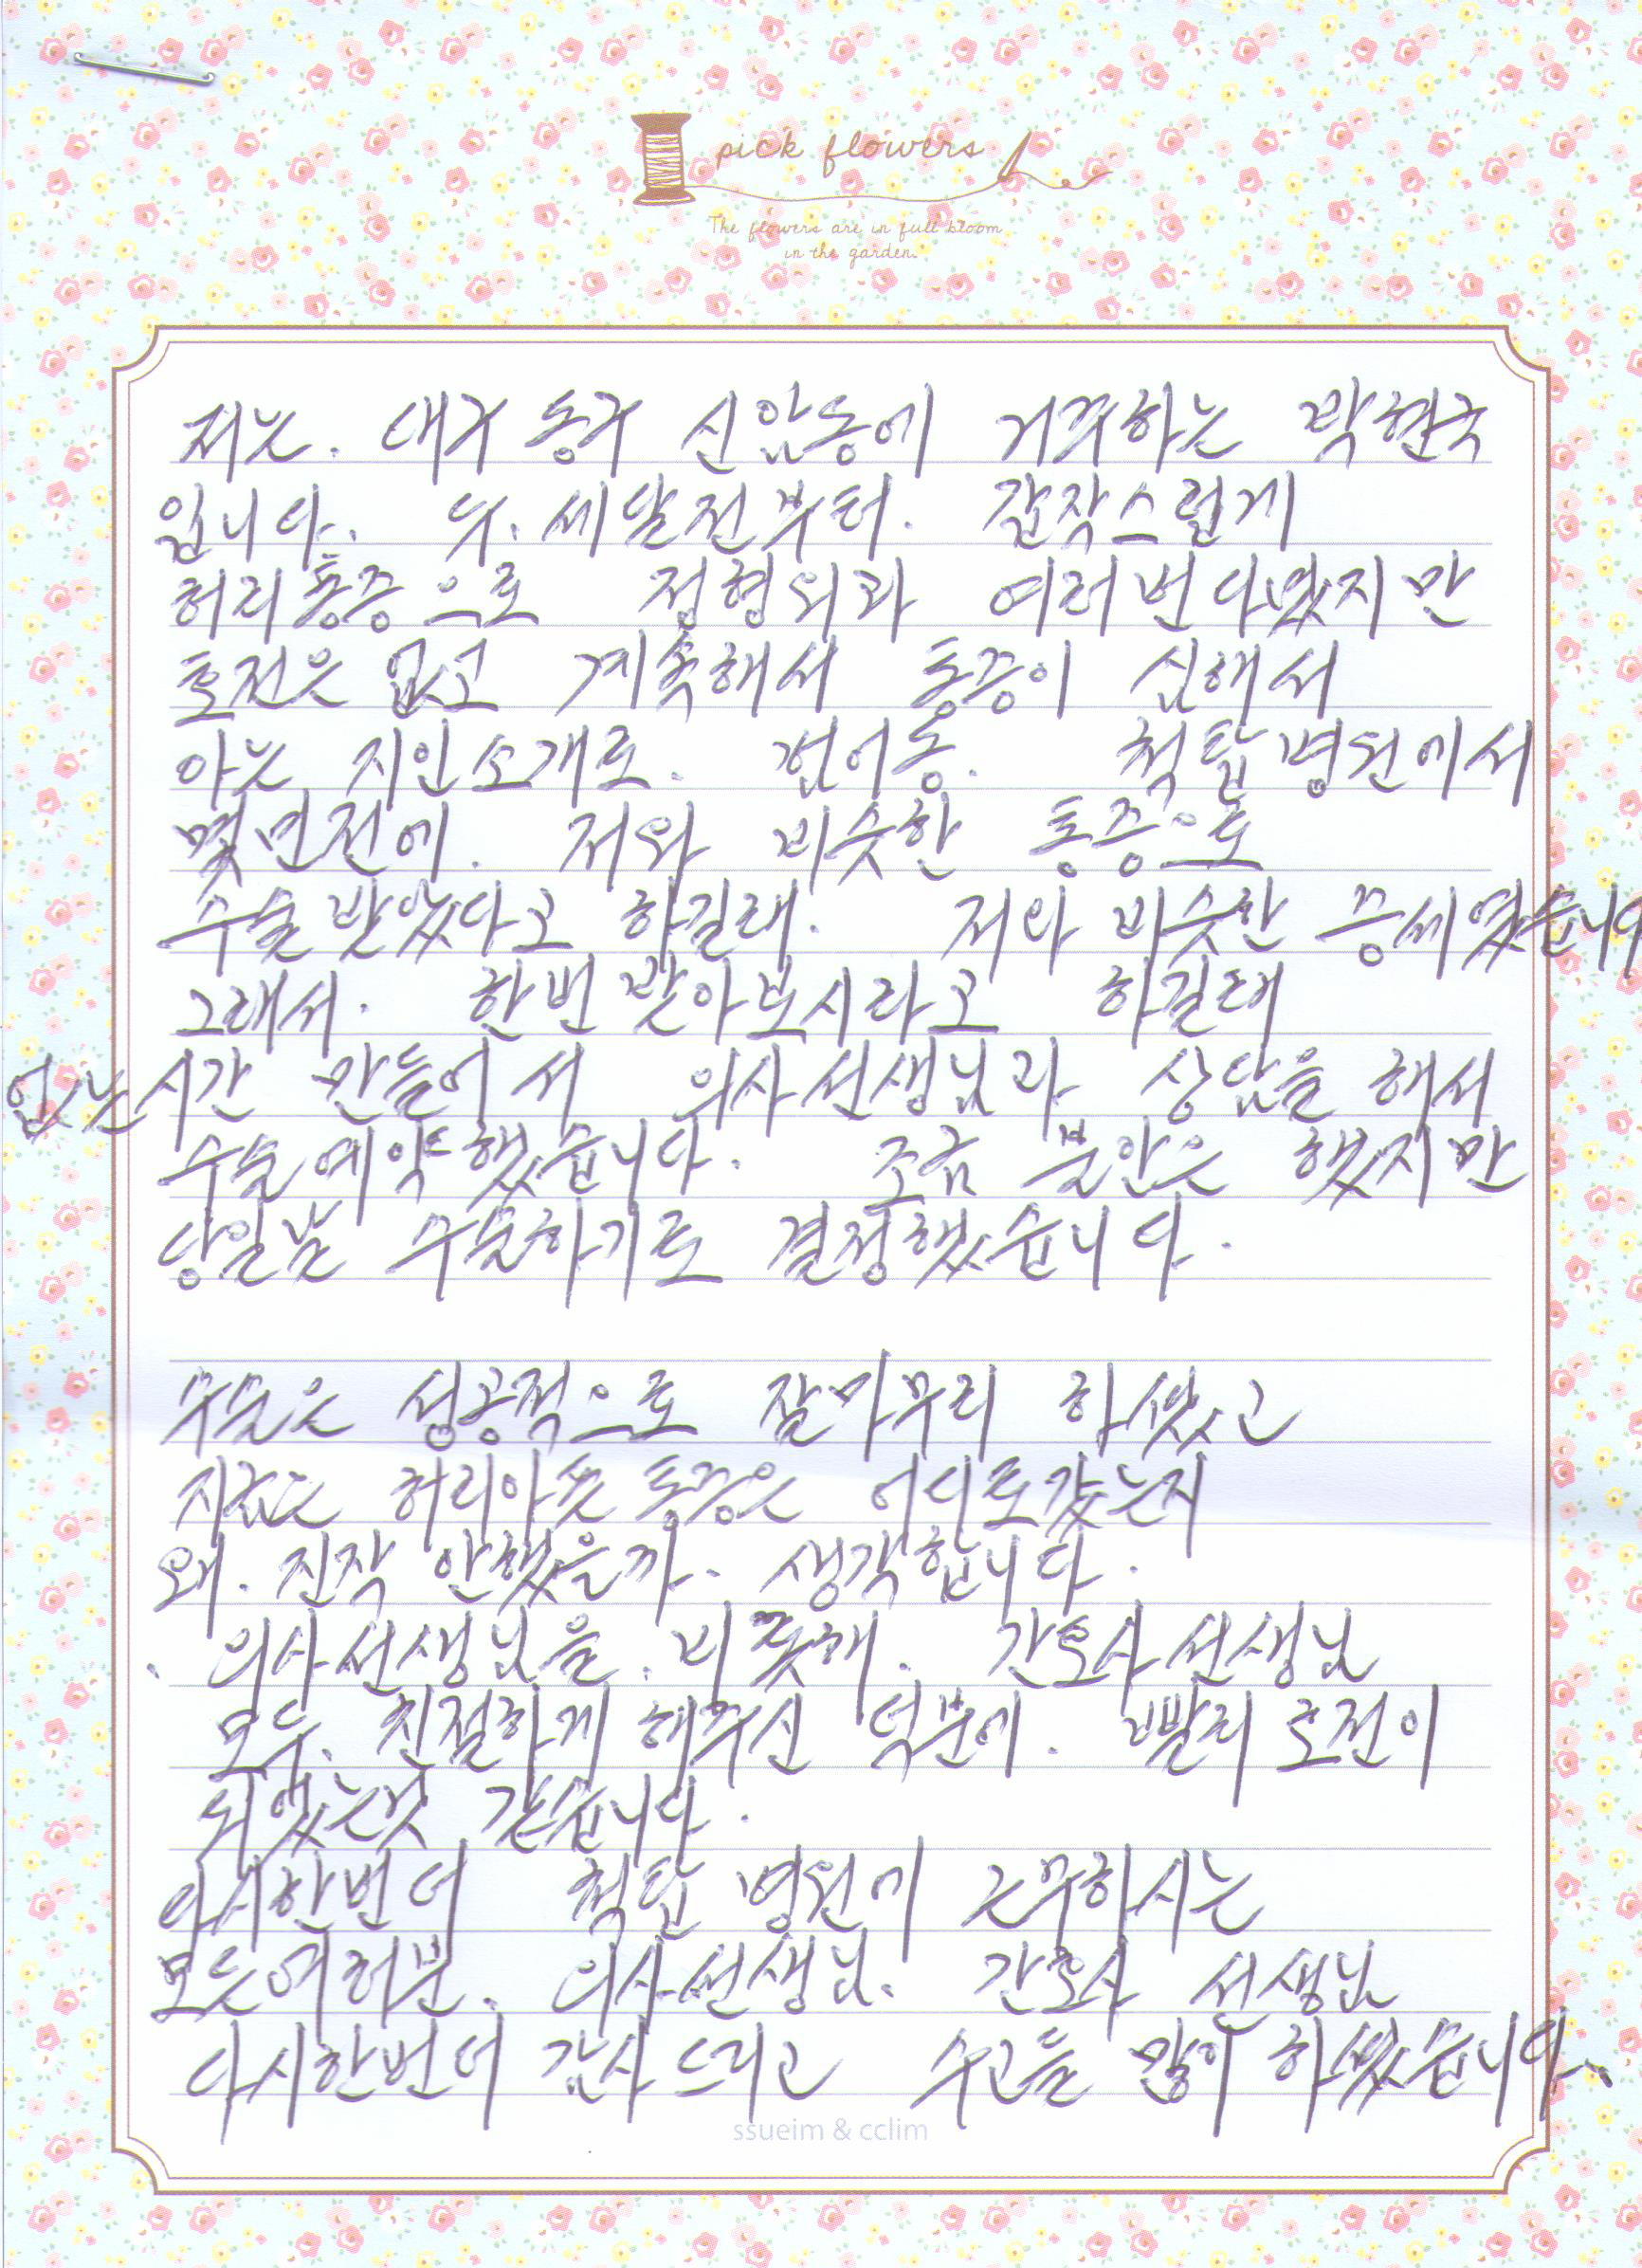 pick flowers
The flowers are in full bloom
in the garden.
저는. 대구 동구 신암동에 거주하는 박현국
입니다. 두.세달전부터. 갑작스럽게
허리통증으로 정형외과 여러번다녔지만
호전은 없고 계속해서 통증이 심해서
아는 지인소개로. 범어동. 척탑병원에서
몇년전에. 저와 비슷한 통증으로
수술받았다고 하길래. 저와 비슷한 증세였습니다
그래서. 한번 받아보시라고 하길래
없는시간 만들어서 의사선생님과 상담을 해서
수술예약했습니다. 조금 불안은 했지만
당일날 수술하기로 결정했습니다.
수술은 성공적으로 잘마무리 하셨고
지금은 허리아픈 통증은 어디로갔는지
왜. 진작 안했을까. 생각합니다.
. 의사선생님을. 비롯해. 간호사선생님
모두. 친절하게 해주신 덕분에. 빨리 호전이
되었는것 같습니다.
다시한번더 척탑 병원에 근무하시는
모든여러분. 의사선생님. 간호사 선생님
다시한번더 감사드리고 수고들 많이 하셨습니다.
ssueim & cclim